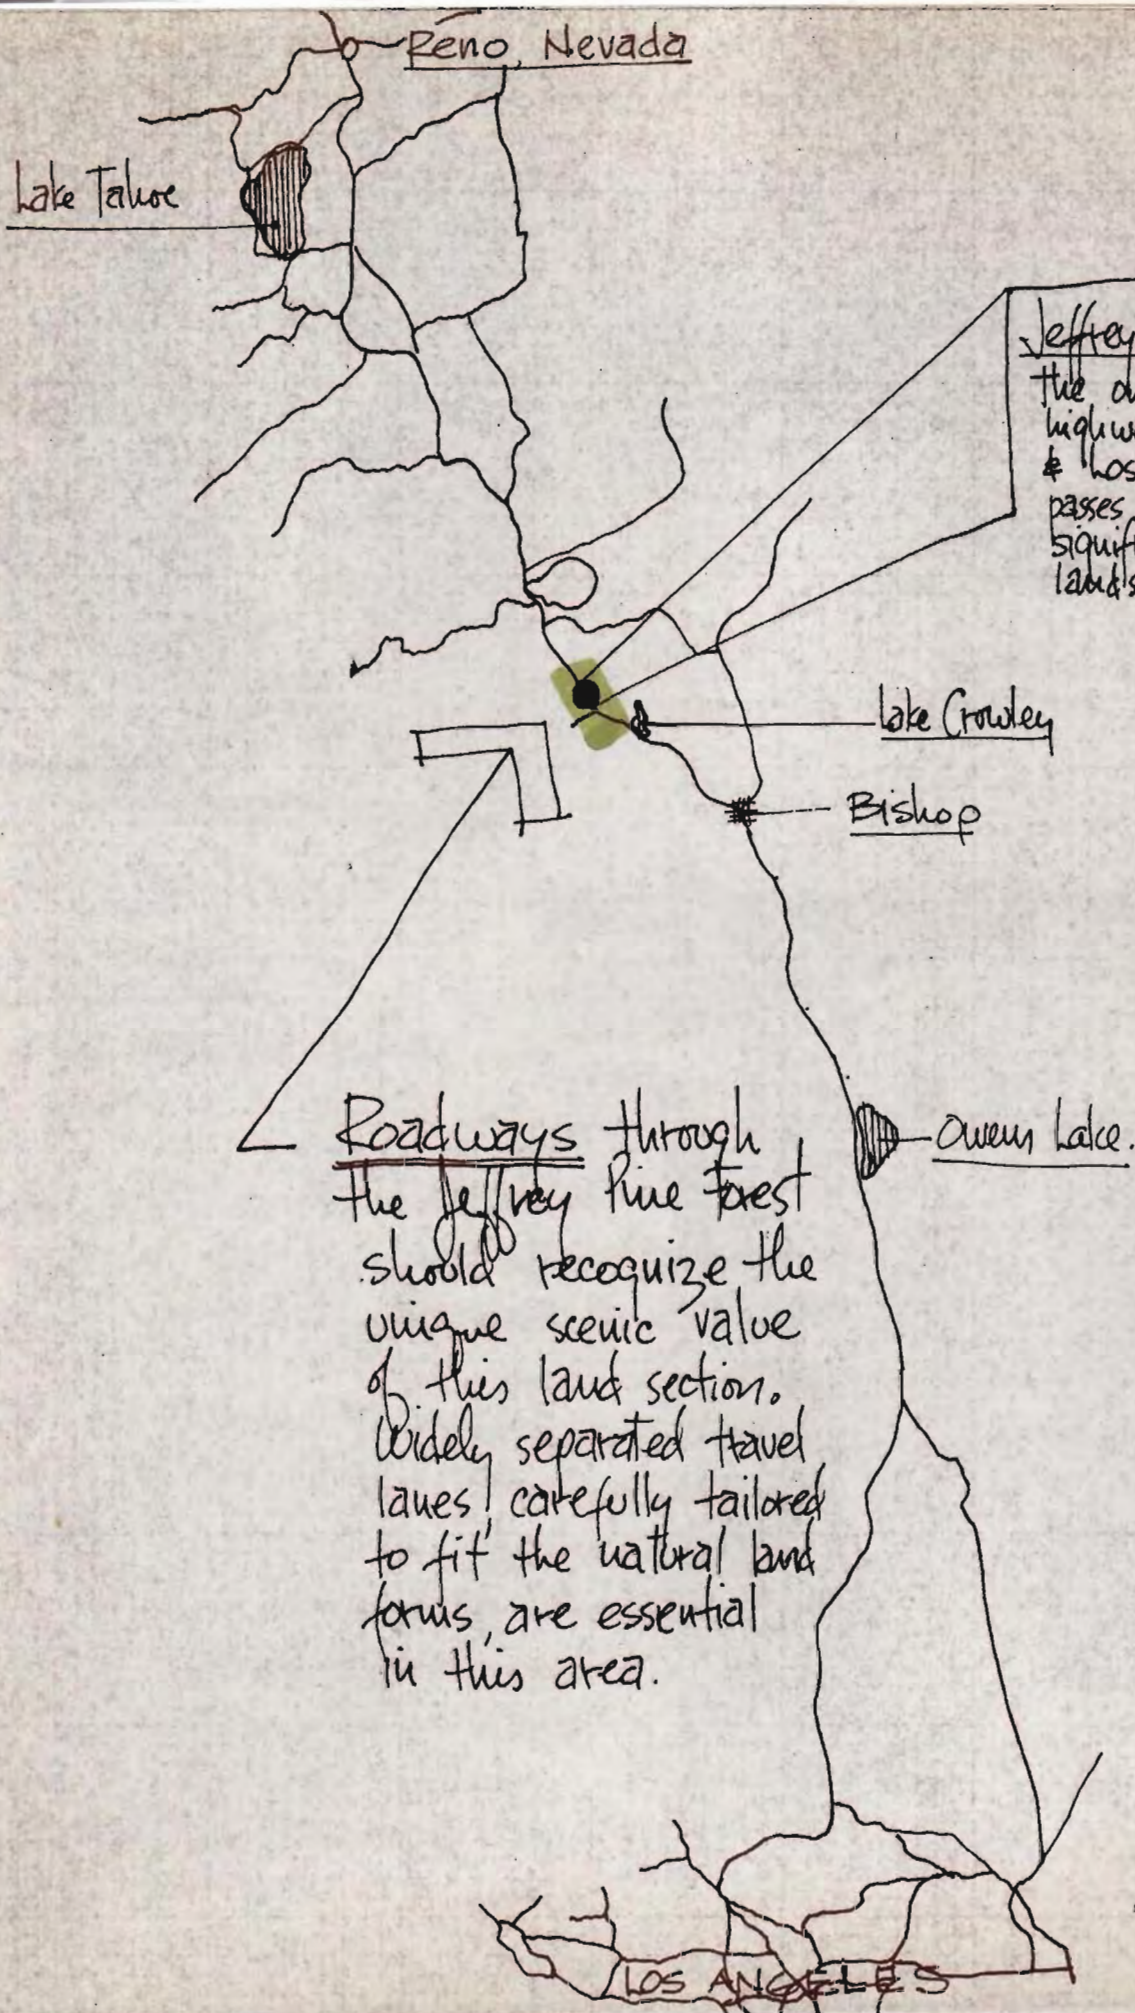 Reno, Nevada
Lake Tahoe
Jeffrey
the
highw
& Los
passes
signif
lands
Lake Crowley
Bishop
Owens Lake.
Roadways through
the Jeffrey Pine Forest
should recognize the
unique scenic value
of this land section.
Widely separated travel
lanes, carefully tailored
to fit the natural land
forms, are essential
in this area.
LOS ANGELES